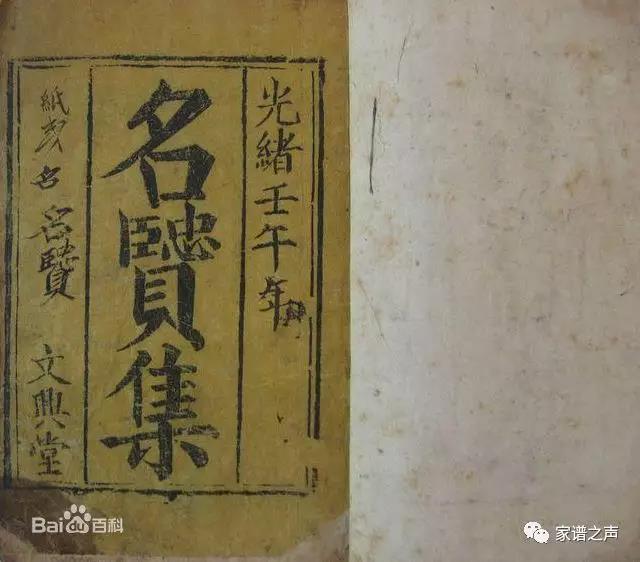 光緒壬午年
名贒集
名贒 文興堂
Baidu百科
家谱之声